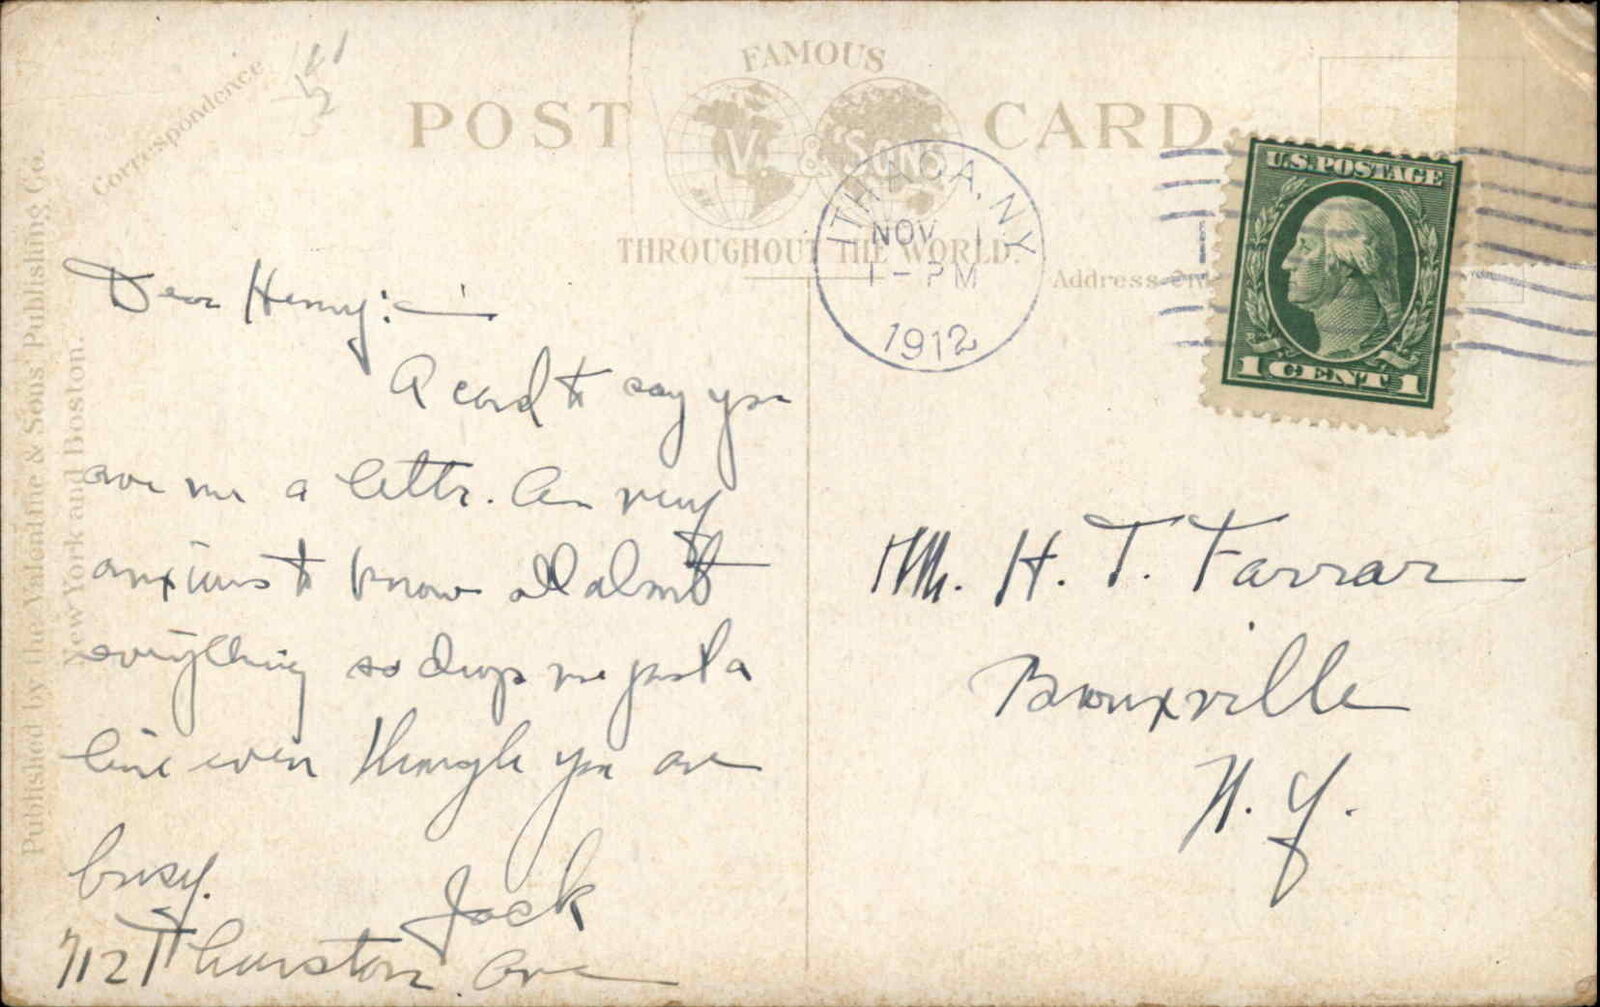 FAMOUS
POST CARD
V. & SONS
THROUGHOUT THE WORLD.
Correspondence
Address
Published by the Valentine & Sons' Publishing Co.
New York and Boston.
ITHACA, N.Y.
NOV 1
1-PM
1912
U.S. POSTAGE
1 CENT 1
Dear Henry:—
A card to say you
owe me a letter. Am very
anxious to know all about
everything so drop me just a
line even though you are
busy.
Jack
712 Thurston Ave
Mr. H. T. Farrar
Bronxville
N. Y.